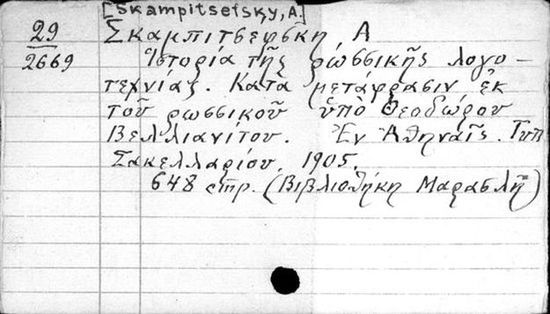 [Skampitsefsky, A.
29
2669
Σκαμπιτσεφσκη, Α
Ἱστορία τῆς ρωσσικῆς λογο-
τεχνίας. Κατὰ μετάφρασιν ἐκ
τοῦ ρωσσικοῦ ὑπὸ Θεοδώρου
Βελλιανίτου. Ἐν Ἀθηναῖς. Τυπ
Σακελλαρίου. 1905.
648 стр. (Βιβλιοθήκη Μαρασλῆ)